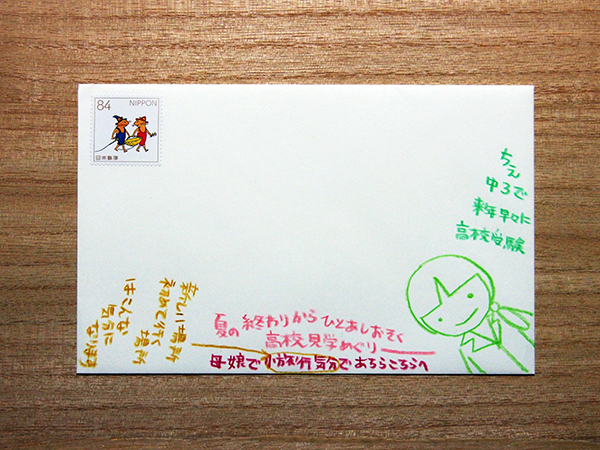 84 NIPPON
日本郵便
ちえ
中3で
来年早々に
高校受験
夏の終わりからひとあしおそく
高校見学めぐり
母娘で小旅行気分であちらこちらへ
新しい場所
初めて行く場所
はこんな
気分に
なります